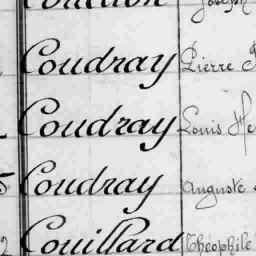 Joseph
Coudray Pierre
Coudray Louis
Coudray Auguste
Couillard Théophile